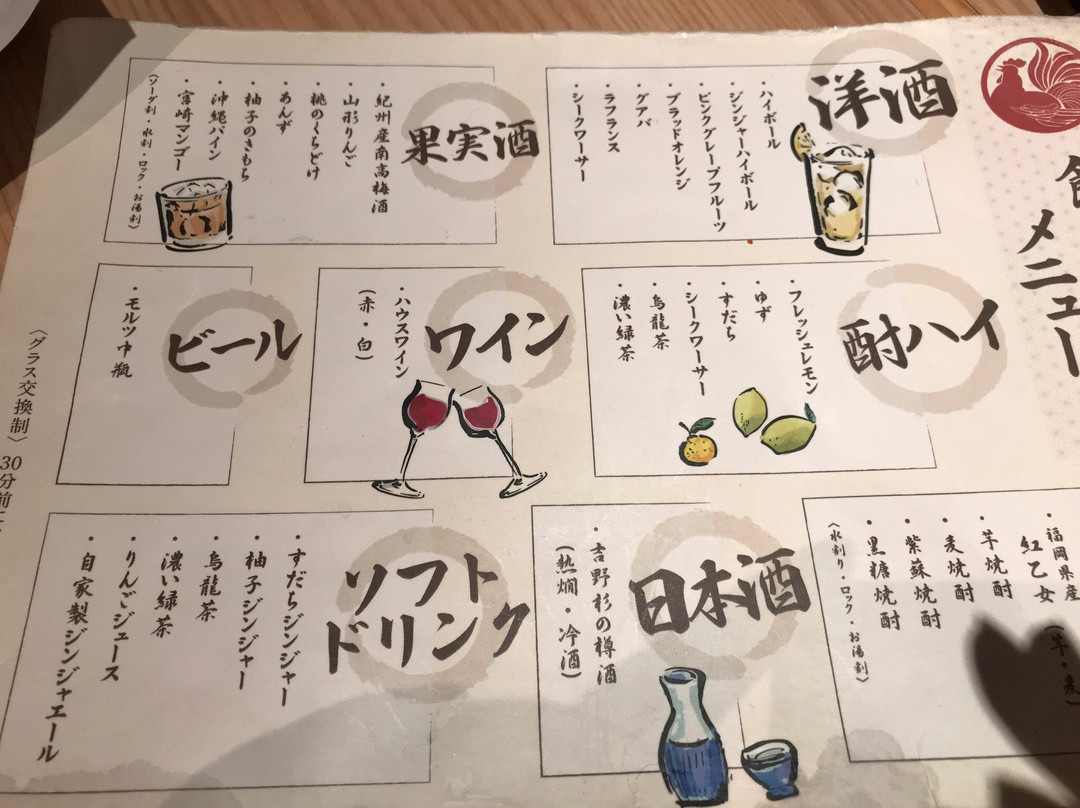 メニュー
洋酒
・ハイボール
・ジンジャーハイボール
・ピンクグレープフルーツ
・ブラッドオレンジ
・グアバ
・ラフランス
・シークワーサー
果実酒
・紀州産南高梅酒
・山形りんご
・桃のくちどけ
・あんず
・柚子のきもち
・沖縄パイン
・宮崎マンゴー
〈ソーダ割・水割・ロック・お湯割〉
酎ハイ
・フレッシュレモン
・ゆず
・すだち
・シークワーサー
・烏龍茶
・濃い緑茶
ワイン
・ハウスワイン
(赤・白)
ビール
・モルツ中瓶
・福岡県産
紅乙女(芋・麦)
・芋焼酎
・麦焼酎
・紫蘇焼酎
・黒糖焼酎
〈水割り・ロック・お湯割〉
日本酒
・吉野杉の樽酒
(熱燗・冷酒)
ソフト
ドリンク
・すだちジンジャー
・柚子ジンジャー
・烏龍茶
・濃い緑茶
・りんごジュース
・自家製ジンジャエール
〈グラス交換制〉30分前